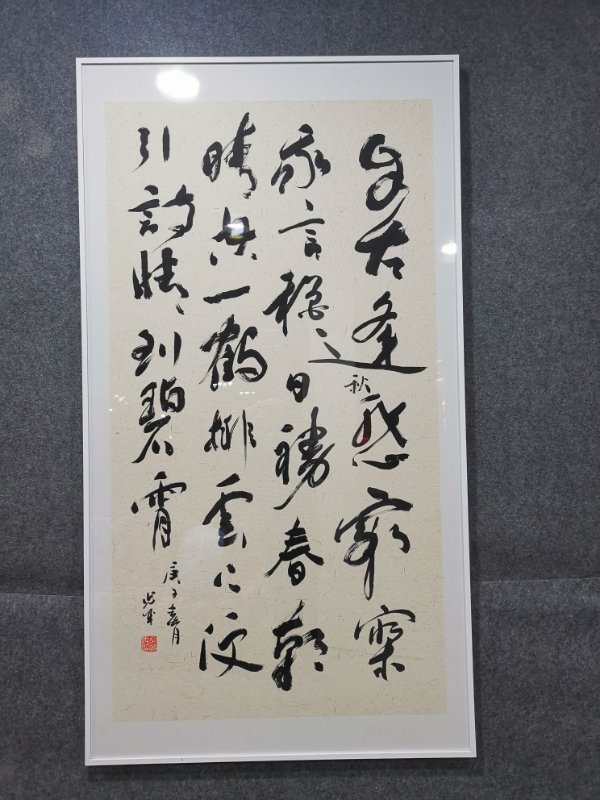 自古逢秋悲寂寥
我言秋日勝春朝
晴空一鶴排雲上便
引詩情到碧霄
庚子春月